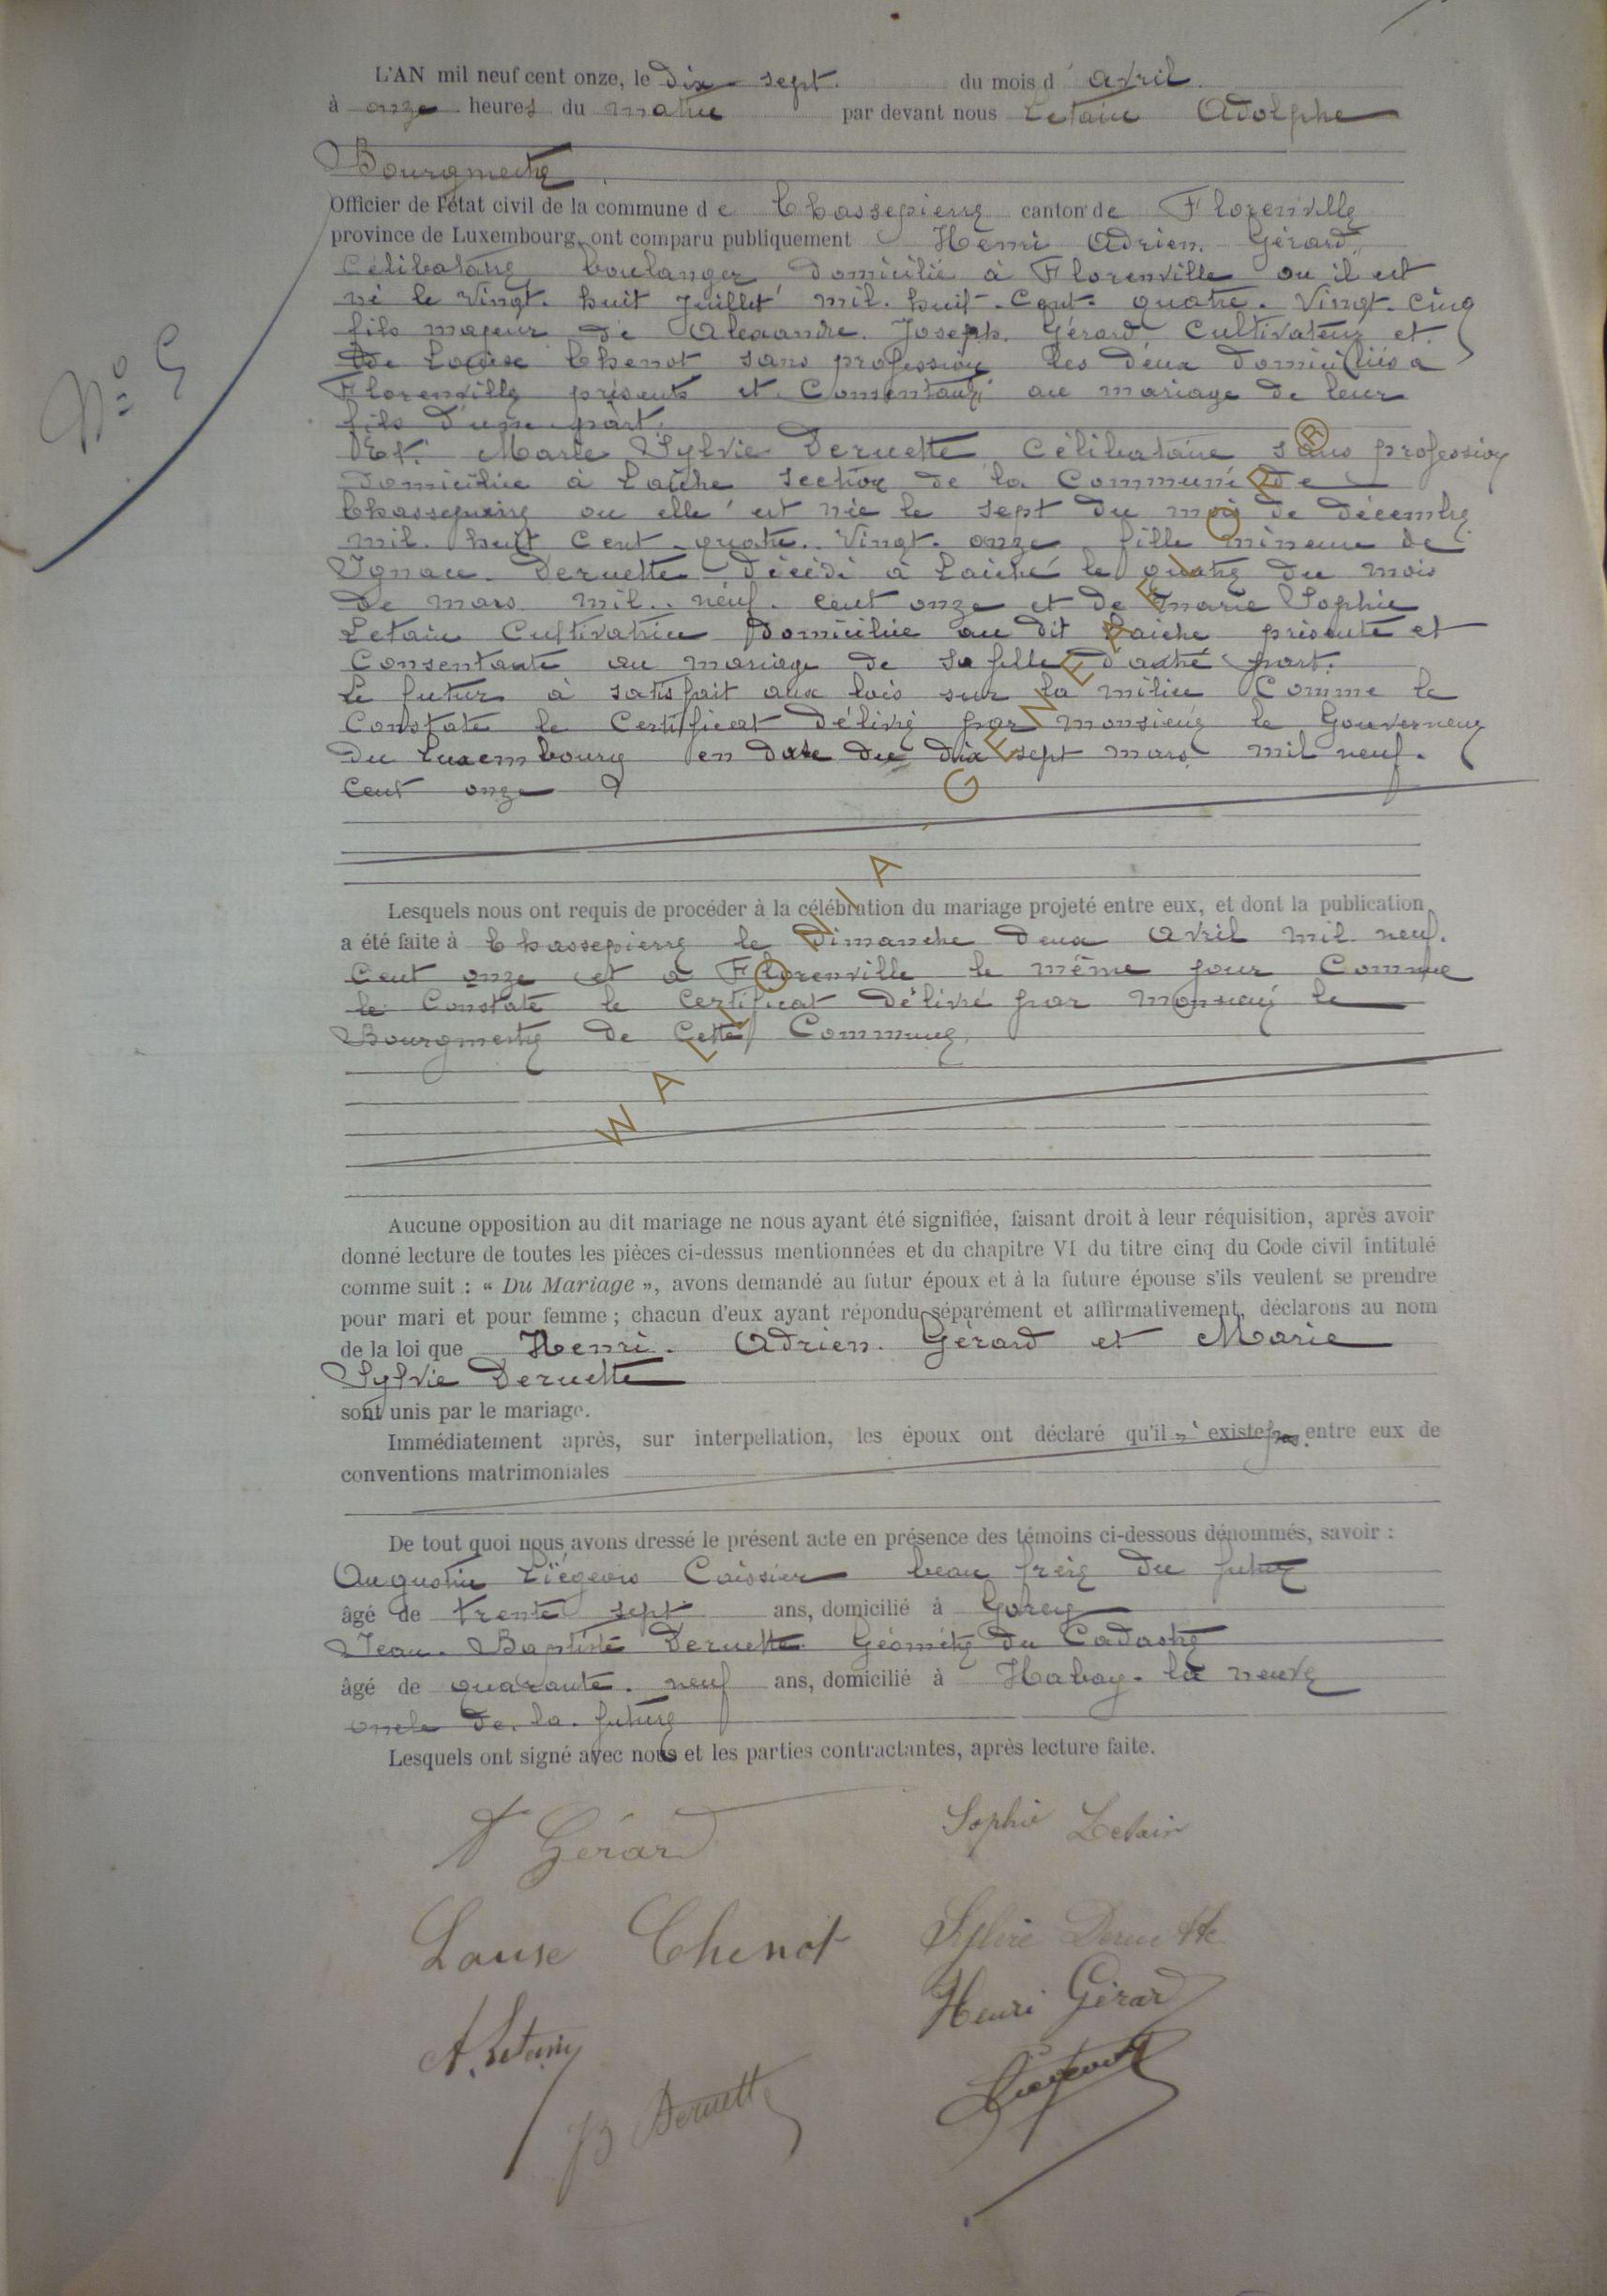 L'AN mil neuf cent onze, le dix-sept du mois d'avril
à onze heures du matin par devant nous Letain Adolphe
Bourgmestre
Officier de l'état civil de la commune de Chassepierre canton de Florenville
province de Luxembourg, ont comparu publiquement Henri Adrien Gérard,
Célibataire boulanger domicilié à Florenville ou il est
né le vingt-huit juillet mil-huit-cent-quatre-vingt-cinq
fils majeur de Alexandre Joseph Gérard cultivateur et
de Louise Chenot sans profession les deux domiciliés à
Florenville présents et consentants au mariage de leur
fils d'une part.
Et Marie Sylvie Deruette célibataire sans profession
domiciliée à Laîche section de la commune de
Chassepierre ou elle est née le sept du mois de décembre
mil-huit cent-quatre-vingt-onze fille mineure de
Ignace Deruette décédé à Laiche le quatre du mois
de mars mil-neuf-cent onze et de Marie Sophie
Letain Cultivatrice domiciliée au dit Laiche présente et
Consentante au mariage de sa fille d'autre part.
Le futur à satisfait aux lois sur la milice Comme le
Constate le Certificat délivré par Monsieur le Gouverneur
du Luxembourg en date du dix sept mars mil neuf-
Cent onze
Lesquels nous ont requis de procéder à la célébration du mariage projeté entre eux, et dont la publication
a été faite à Chassepierre le Dimanche deux Avril mil neuf-
Cent onze et à Florenville le même jour Comme
le Constate le Certificat délivré par Monsieur le
Bourgmestre de cette Commune.
Aucune opposition au dit mariage ne nous ayant été signifiée, faisant droit à leur réquisition, après avoir
donné lecture de toutes les pièces ci-dessus mentionnées et du chapitre VI du titre cinq du Code civil intitulé
comme suit : « Du Mariage », avons demandé au futur époux et à la future épouse s'ils veulent se prendre
pour mari et pour femme ; chacun d'eux ayant répondu séparément et affirmativement, déclarons au nom
de la loi que Henri-Adrien Gérard et Marie
Sylvie Deruette
sont unis par le mariage.
Immédiatement après, sur interpellation, les époux ont déclaré qu'il n'existe pas entre eux de
conventions matrimoniales
De tout quoi nous avons dressé le présent acte en présence des témoins ci-dessous dénommés, savoir :
Augustin Liégeois Caissier beau frère du futur
âgé de trente sept ans, domicilié à Gorcy
Jean-Baptiste Deruette Géomètre du Cadastre
âgé de quarante-neuf ans, domicilié à Habay-la neuve
oncle de la future
Lesquels ont signé avec nous et les parties contractantes, après lecture faite.
A Gérard Sophie Letain
Louise Chenot Sylvie Deruette
Henri Gérard
A. Letain
JB Deruette
N° 5
WALLONIA - GENEFEDOR ®